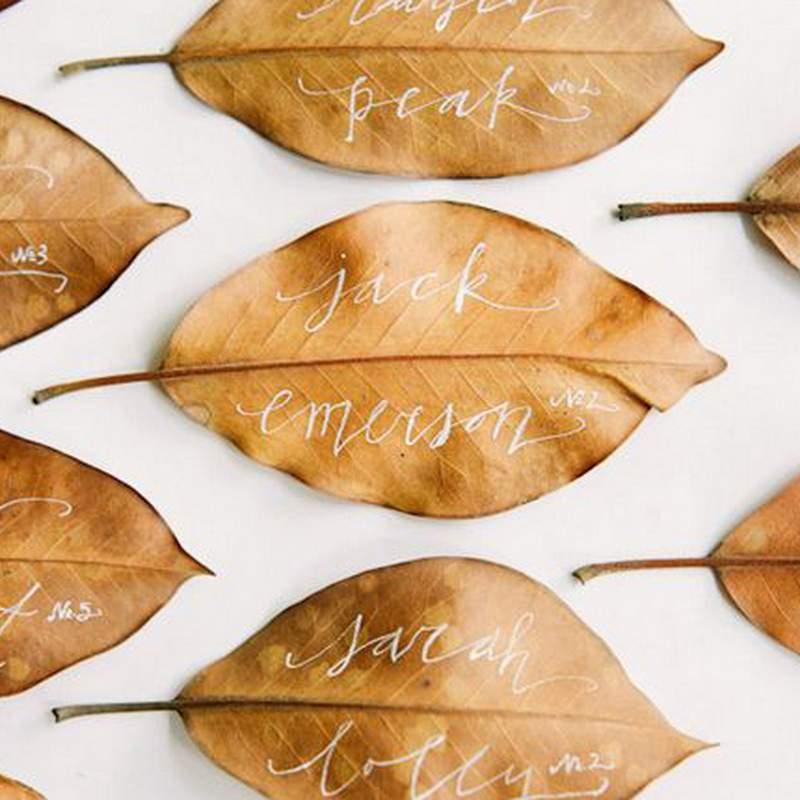 taylor
peak No. 2
No. 3
jack
emerson No. 2
No. 5
sarah
lolly No. 2